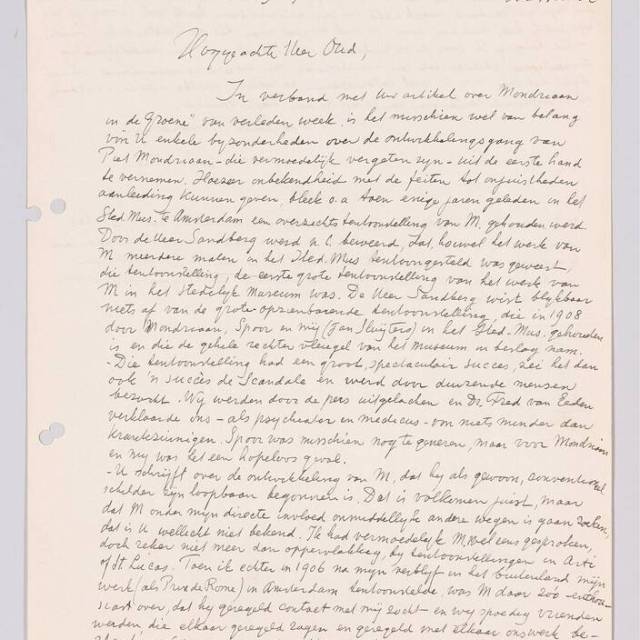 Hoggeachte Heer Oud,
In verband met Uw artikel over Mondriaan
in de Groene" van verleden week, is het misschien wel van belang
vóór U enkele byzonderheden over de ontwikkelingsgang van
Piet Mondriaan - die vermoedelyk vergeten zyn - uit de eerste hand
te vernemen. Hoezeer onbekendheid met de feiten tot onjuistheden
aanleiding kunnen geven, bleek o.a. toen enige jaren geleden in het
Sted. Mus. te Amsterdam een overzichtstentoonstelling van M. gehouden werd.
Door de Heer Sandberg werd n.l. beweerd, dat, hoewel het werk van
M meerdere malen in het Sted. Mus tentoongesteld was geweest,
die tentoonstelling, de eerste grote tentoonstelling van het werk van
M in het Stedelyk Museum was. De Heer Sandberg wist blykbaar
niets af van de grote opzienbarende tentoonstelling, die in 1908
door Mondriaan, Spoor en my (Jan Sluyters) in het Sted. Mus. gehouden
is en die de gehele rechter vleugel van het museum in beslag nam.
- Die tentoonstelling had een groot, spectaculair succes, zei het dan
ook 'n succès de Scandale en werd door duizende mensen
bezocht. Wy werden door de pers uitgelachen en Dr. Fred van Eeden
verklaarde ons - als psychiater en medicus - voor niets minder dan
krankzinnigen. Spoor was misschien nog te genezen, maar voor Mondriaan
en my was het een hopeloos geval.
- U schryft over de ontwikkeling van M, dat hy als gewoon, conventioneel
schilder zyn loopbaan begonnen is. Dat is volkomen juist, maar
dat M onder myn directe invloed onmiddellyk andere wegen is gaan zoeken,
dat is U wellicht niet bekend. Ik had vermoedelyk M. wel eens gesproken,
doch zeker niet meer dan oppervlakkig, by tentoonstellingen in Arti
of St. Lucas. Toen ik echter in 1906 na myn verblyf in het buitenland myn
werk (als Prix de Rome) in Amsterdam tentoonstelde, was M daar zoo enthou-
siast over, dat hy geregeld contact met my zocht - en wy spoedig vrienden
werden die elkaar geregeld zagen en geregeld met elkaar ons werk be-